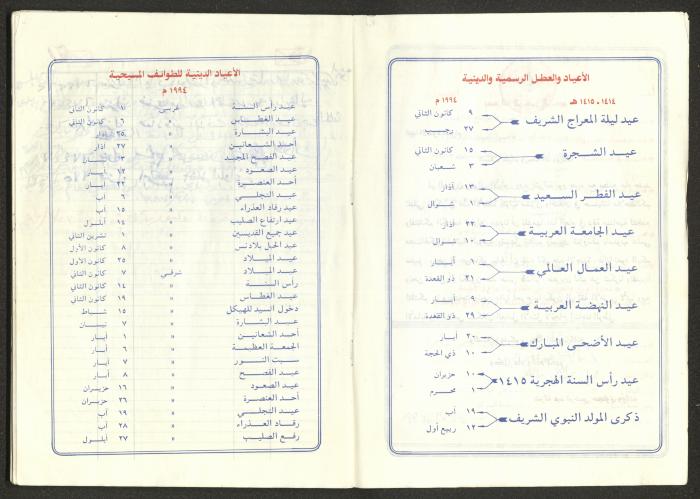 الأعياد والعطل الرسمية والدينية
١٤١٤ - ١٤١٥ هـ ١٩٩٤ م
عيد ليلة المعراج الشريف ٩ كانون الثاني
٢٧ رجب
عيد الشجرة ١٥ كانون الثاني
٣ شعبان
عيد الفطر السعيد ١٣ آذار
١ شوال
عيد الجامعة العربية ٢٢ آذار
١٠ شوال
عيد العمال العالمي ١ أيار
٢١ ذو القعدة
عيد النهضة العربية ٩ أيار
٢٩ ذو القعدة
عيد الأضحى المبارك ٢٠ أيار
١٠ ذي الحجة
عيد رأس السنة الهجرية ١٤١٥ ١٠ حزيران
١ محرم
ذكرى المولد النبوي الشريف ١٩ آب
١٢ ربيع أول
الأعياد الدينية للطوائف المسيحية
١٩٩٤ م
عيد رأس السنة غربي ١ كانون الثاني
عيد الغطاس " ٦ كانون الثاني
عيد البشارة " ٢٥ آذار
أحد الشعانين " ٢٧ آذار
عيد الفصح المجيد " ٣
عيد الصعود " ١٢ أيار
أحد العنصرة " ٢٢ أيار
عيد التجلي " ٦ آب
عيد رقاد العذراء " ١٥ آب
عيد ارتفاع الصليب " ١٤ أيلول
عيد جميع القديسين " ١ تشرين الثاني
عيد الحبل بلا دنس " ٨ كانون الأول
عيد الميلاد " ٢٥ كانون الأول
عيد الميلاد شرقي ٧ كانون الثاني
رأس السنة " ١٤ كانون الثاني
عيد الغطاس " ١٩ كانون الثاني
دخول السيد للهيكل " ١٥ شباط
عيد البشارة " ٧ نيسان
أحد الشعانين " ١ أيار
الجمعة العظيمة " ٦ أيار
سبت النور " ٧ أيار
عيد الفصح " ٨ أيار
عيد الصعود " ١٦ حزيران
أحد العنصرة " ٢٦ حزيران
عيد التجلي " ١٩ آب
رقاد العذراء " ٢٨ آب
رفع الصليب " ٢٧ أيلول